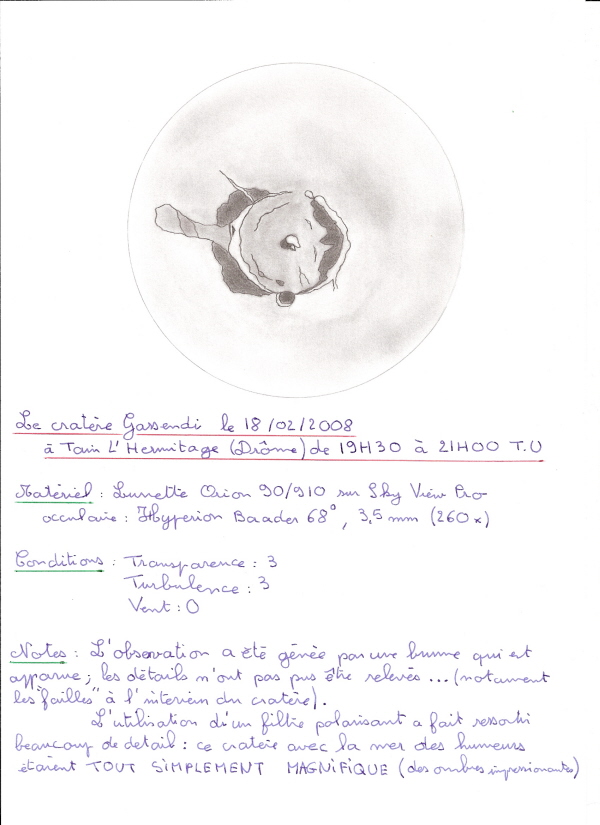 Le cratère Gassendi le 18/02/2008
à Tain L'Hermitage (Drôme) de 19H30 à 21H00 T.U
Matériel : Lunette Orion 90/910 sur Sky View Pro
occulaire : Hyperion Baader 68°, 3,5 mm (260x)
Conditions : Transparence : 3
Turbulence : 3
Vent : 0
Notes : L'observation a été gênée par une brume qui est
apparue ; les détails n'ont pas pus être relevés ... (notamment
les "failles" à l'intérieur du cratère).
L'utilisation d'un filtre polarisant a fait ressortir
beaucoup de detail : ce cratère avec la mer des humeurs
étaient TOUT SIMPLEMENT MAGNIFIQUE (des ombres impressionantes)